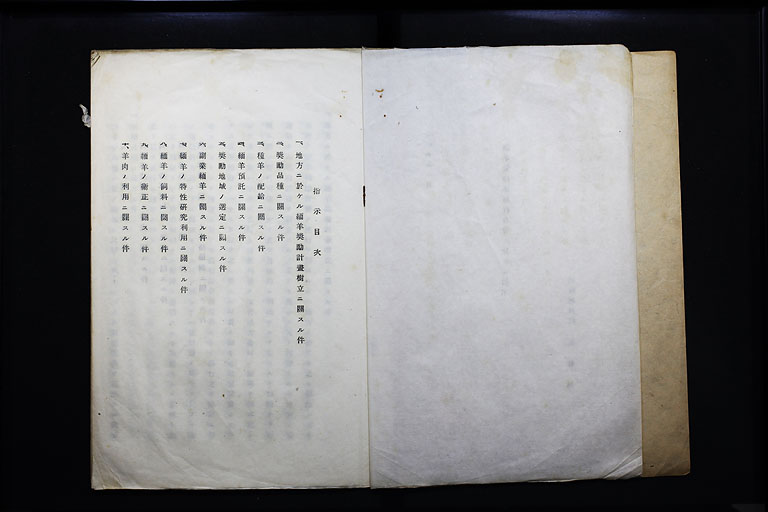 指示目次
一、地方ニ於ケル緬羊奬勵計畫樹立ニ關スル件
二、奬勵品種ニ關スル件
三、種羊ノ配給ニ關スル件
四、緬羊預託ニ關スル件
五、奬勵地域ノ選定ニ關スル件
六、副業緬羊ニ關スル件
七、緬羊ノ特性研究利用ニ關スル件
八、緬羊ノ飼料ニ關スル件
九、緬羊ノ衞正ニ關スル件
十、羊肉ノ利用ニ關スル件